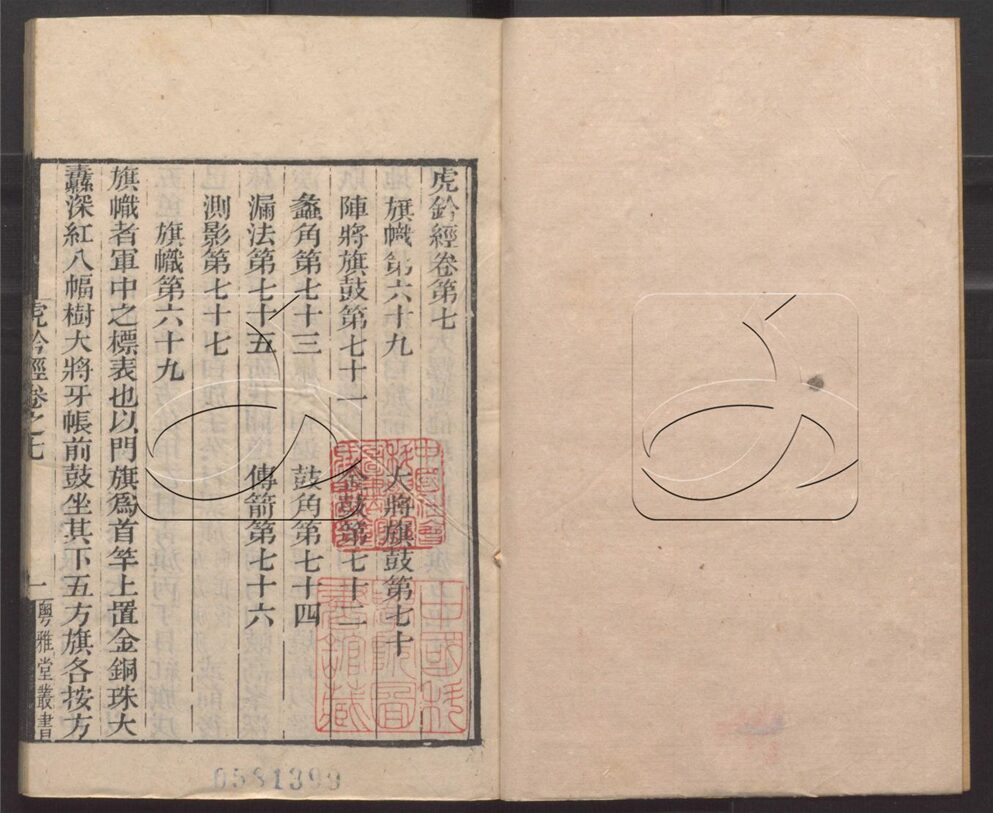 虎鈐經卷第七
旗幟第六十九　大將旗鼓第七十
陣將旗鼓第七十一　金鼓第七十二
蠡角第七十三　鼓角第七十四
漏法第七十五　傳箭第七十六
測影第七十七
旗幟第六十九
旗幟者軍中之標表也以門旗爲首竿上置金銅珠大
纛深紅八幅樹大將牙帳前鼓坐其下五方旗各按方
虎鈐經卷之七　一　粵雅堂叢書
0581399